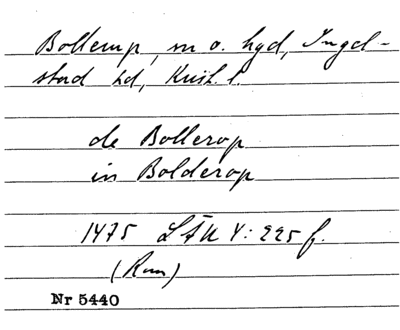 Bollerup, sn o. hgd, Ingel-
stad hd, Krist. l.
de Bollerop
in Bolderop
1475 LÄU 4: 225 f.
(Rom)
Nr 5440